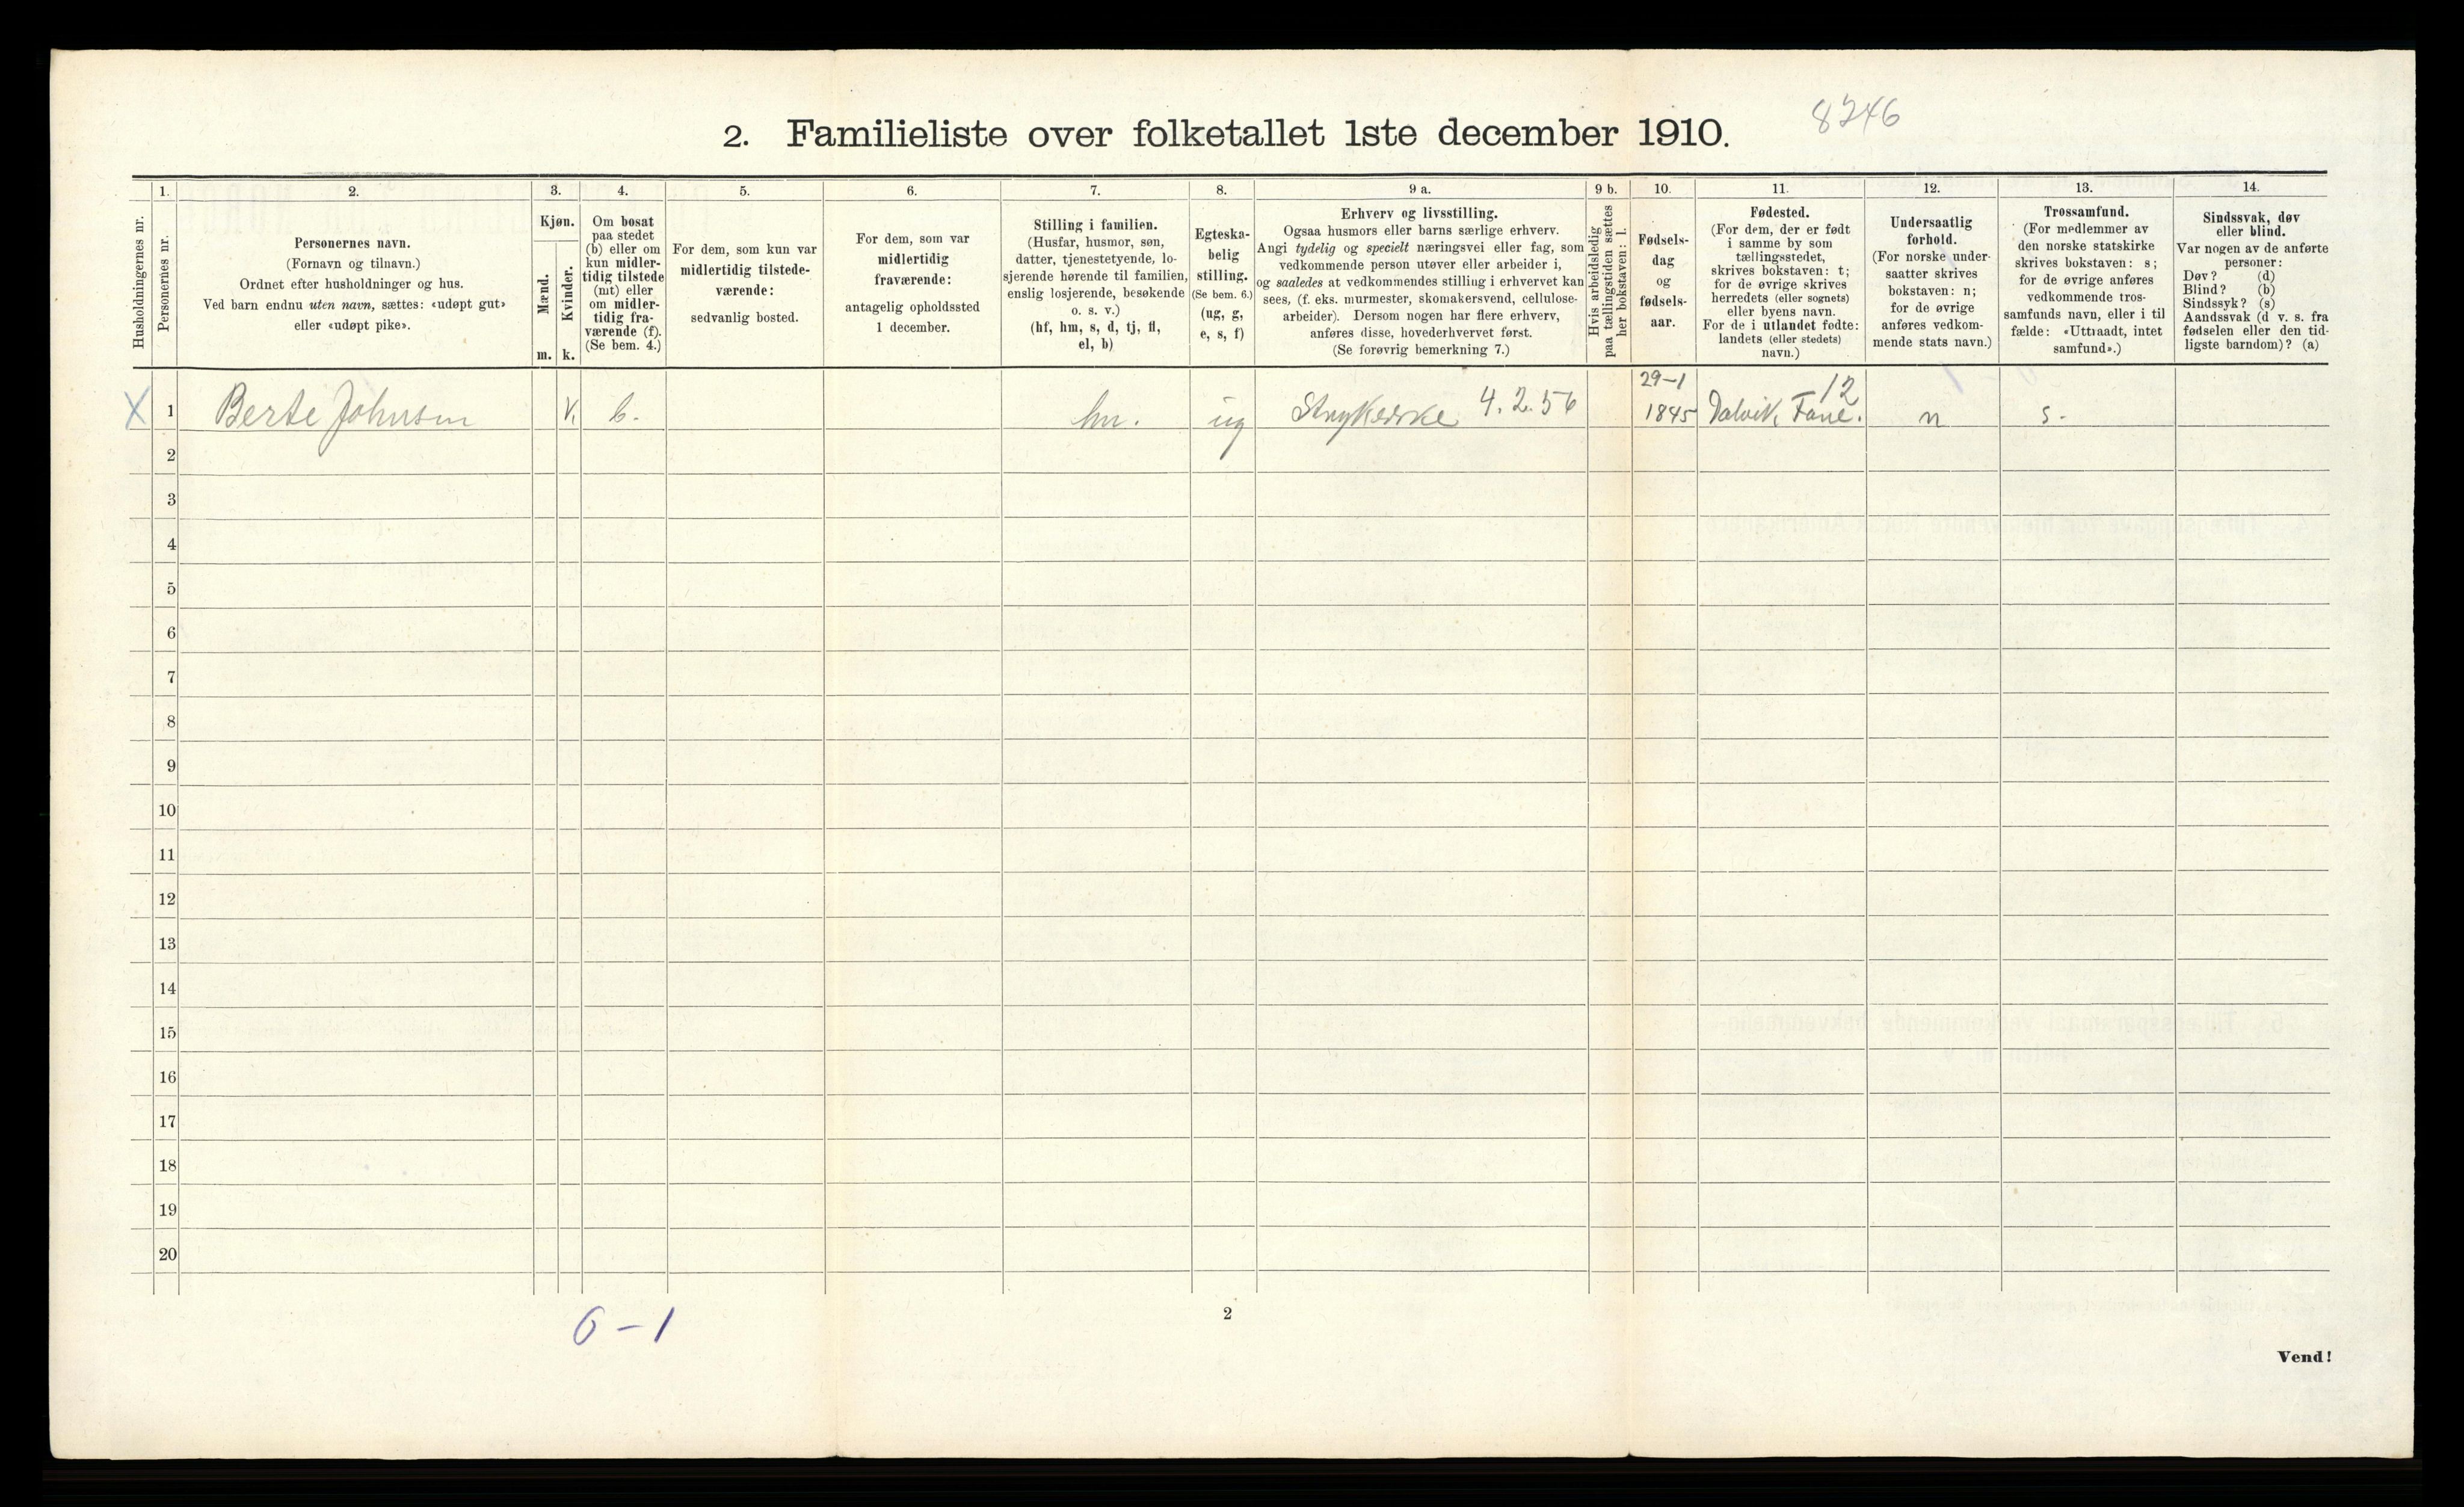 8246
2. Familieliste over folketallet 1ste december 1910.
Husholdningernes nr.
1.
Personernes nr.
2.
Personernes navn.
(Fornavn og tilnavn.)
Ordnet efter husholdninger og hus.
Ved barn endnu uten navn, sættes: «udøpt gut»
eller «udøpt pike».
3.
Kjøn.
Mænd.
m.
Kvinder.
k.
4.
Om bosat
paa stedet
(b) eller om
kun midler-
tidig tilstede
(mt) eller
om midler-
tidig fra-
værende (f).
(Se bem. 4.)
5.
For dem, som kun var
midlertidig tilstede-
værende:
sedvanlig bosted.
6.
For dem, som var
midlertidig
fraværende:
antagelig opholdssted
1 december.
7.
Stilling i familien.
(Husfar, husmor, søn,
datter, tjenestetyende, lo-
sjerende hørende til familien,
enslig losjerende, besøkende
o. s. v.)
(hf, hm, s, d, tj, fl,
el, b)
8.
Egteska-
belig
stilling.
(Se bem. 6.)
(ug, g,
e, s, f)
9 a.
Erhverv og livsstilling.
Ogsaa husmors eller barns særlige erhverv.
Angi tydelig og specielt næringsvei eller fag, som
vedkommende person utøver eller arbeider i,
og saaledes at vedkommendes stilling i erhvervet kan
sees, (f. eks. murmester, skomakersvend, cellulose-
arbeider). Dersom nogen har flere erhverv,
anføres disse, hovederhvervet først.
(Se forøvrig bemerkning 7.)
9 b.
Hvis arbeidsledig
paa tællingstiden sættes
her bokstaven: l.
10.
Fødsels-
dag
og
fødsels-
aar.
11.
Fødested.
(For dem, der er født
i samme by som
tællingsstedet,
skrives bokstaven: t;
for de øvrige skrives
herredets (eller sognets)
eller byens navn.
For de i utlandet fødte:
landets (eller stedets)
navn.)
12.
Undersaatlig
forhold.
(For norske under-
saatter skrives
bokstaven: n;
for de øvrige
anføres vedkom-
mende stats navn.)
13.
Trossamfund.
(For medlemmer av
den norske statskirke
skrives bokstaven: s;
for de øvrige anføres
vedkommende tros-
samfunds navn, eller i til
fælde: «Uttraadt, intet
samfund».)
14.
Sindssvak, døv
eller blind.
Var nogen av de anførte
personer:
Døv? (d)
Blind? (b)
Sindssyk? (s)
Aandssvak (d v. s. fra
fødselen eller den tid-
ligste barndom)? (a)
X 1 Berte Johnsen k. b. hm. ug Strykerske 4.2.56 29-1 1845 Dalvik, Fane. 12 n s.
2
3
4
5
6
7
8
9
10
11
12
13
14
15
16
17
18
19
20
0-1
2
Vend!